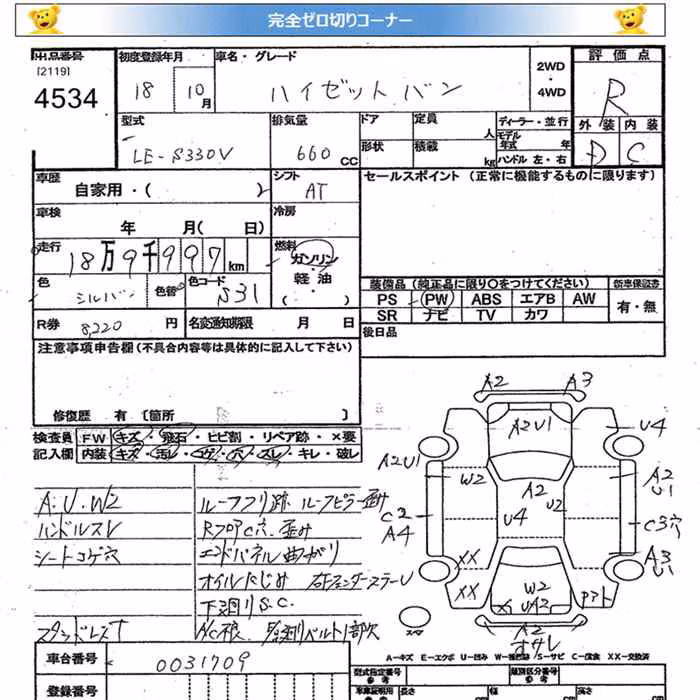 完全ゼロ切りコーナー
出品番号
[2119]
4534
初度登録年月
18 10月
車名・グレード
ハイゼットバン
2WD
・
4WD
評価点
R
外装 内装
D C
型式
LE-S330V
排気量
660 CC
ドア
形状
定員
人
積載
kg
ディーラー・並行
モデル年式 年
ハンドル 左・右
車歴
自家用・( )
シフト
AT
セールスポイント (正常に機能するものに限ります)
車検
年 月( 日)
冷房
走行
18万9千997 km
燃料
ガソリン
軽油
( )
色
シルバー
色替
色コード
S31
装備品 (純正品に限り○をつけてください)
新車保証書
PS PW ABS エアB AW
SR ナビ TV カワ
有・無
R券 8,220 円
名変通知期限 月 日
後日品
注意事項申告欄 (不具合内容等は具体的に記入して下さい)
修復歴 有 [箇所 ]
検査員
記入欄
FW キズ・飛石・ヒビ割・リペア跡・×要
内装 キズ・汚レ・コゲ・穴・スレ・キレ・破レ
A・U・W2
ハンドルスレ
シートコゲ穴
ルーフフリ跡 ルーフピラー歪み
RフロアC穴、歪み
エンドパネル曲がり
オイルにじみ
下廻りS.C.
A2 A3
A2U1
U4
A2U1
W2
A2
A2
U1
U2
C2
A4
U4
C3穴
XX
A3
U1
XX
W2
X UA2
アト
A2
スペア
A-キズ E-エクボ U-凹み S-サビ C-腐食 XX-交換済
車台番号
0031709
登録番号
型式指定番号
参考
類別区分番号
参考
車庫証明用
長さ
cm
幅
cm
高さ
cm